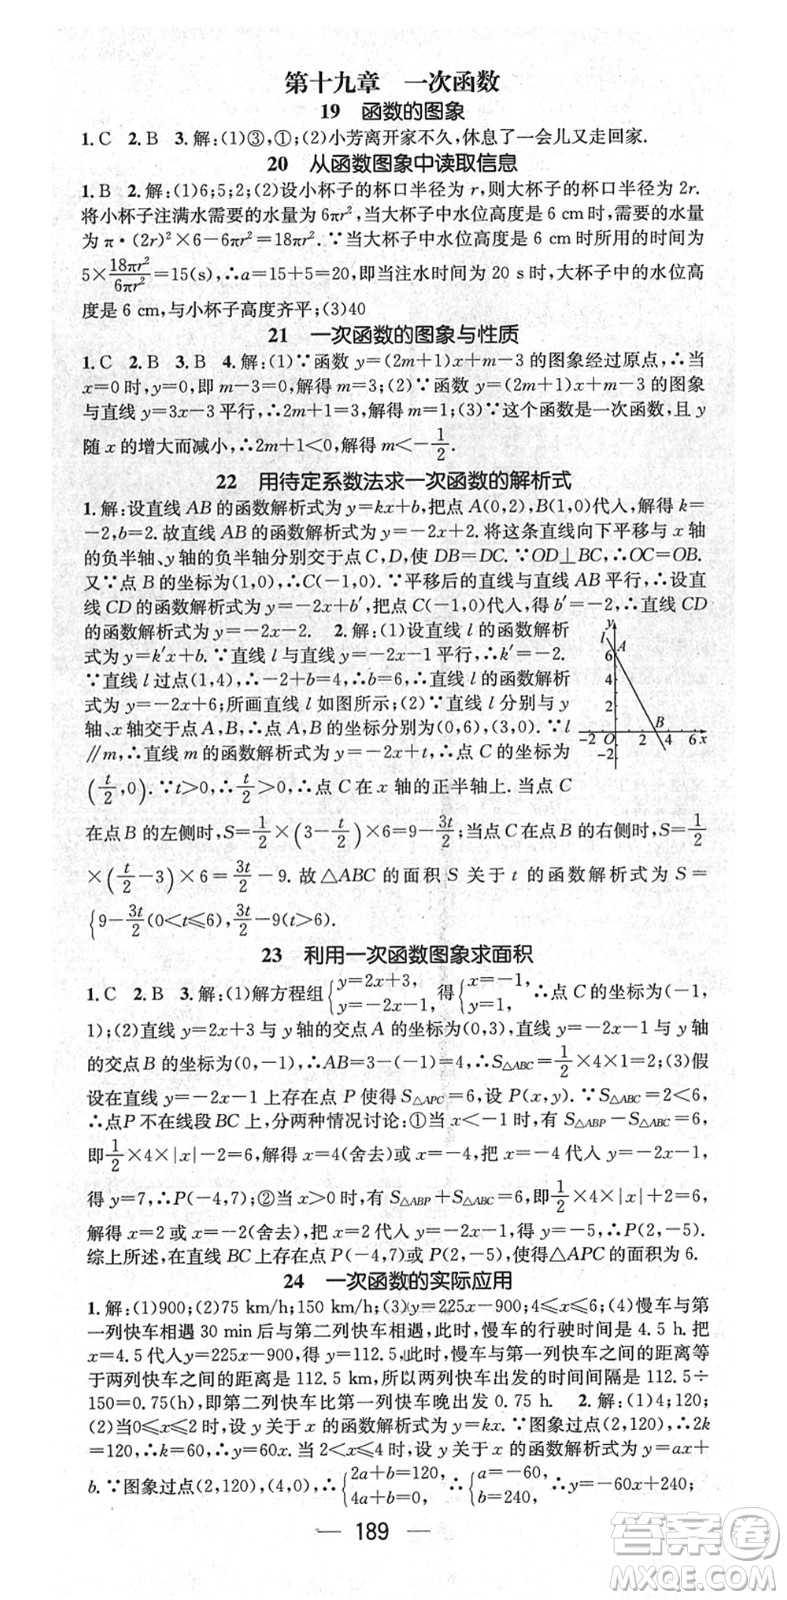 第十九章　一次函数
19　函数的图象
1. C　2. B　3. 解:(1)③,①;(2)小芳离开家不久,休息了一会儿又走回家.
20　从函数图象中读取信息
1. B　2. 解:(1)6;5;2;(2)设小杯子的杯口半径为 r,则大杯子的杯口半径为 2r.
将小杯子注满水需要的水量为 6πr²,当大杯子中水位高度是 6 cm 时,需要的水量
为 π·(2r)²×6−6πr²=18πr². ∵当大杯子中水位高度是 6 cm 时所用的时间为
5×18πr²/6πr²=15(s),∴a=15+5=20,即当注水时间为 20 s 时,大杯子中的水位高
度是 6 cm,与小杯子高度齐平;(3)40
21　一次函数的图象与性质
1. C　2. B　3. B　4. 解:(1)∵函数 y=(2m+1)x+m−3 的图象经过原点,∴当
x=0 时,y=0,即 m−3=0,解得 m=3;(2)∵函数 y=(2m+1)x+m−3 的图象
与直线 y=3x−3 平行,∴2m+1=3,解得 m=1;(3)∵这个函数是一次函数,且 y
随 x 的增大而减小,∴2m+1<0,解得 m<−1/2.
22　用待定系数法求一次函数的解析式
1. 解:设直线 AB 的函数解析式为 y=kx+b,把点 A(0,2),B(1,0)代入,解得 k=
−2,b=2. 故直线 AB 的函数解析式为 y=−2x+2. 将这条直线向下平移与 x 轴
的负半轴、y 轴的负半轴分别交于点 C,D,使 DB=DC. ∵OD⊥BC,∴OC=OB.
又∵点 B 的坐标为(1,0),∴C(−1,0). ∵平移后的直线与直线 AB 平行,∴设直
线 CD 的函数解析式为 y=−2x+b′,把点 C(−1,0)代入,得 b′=−2,∴直线 CD
的函数解析式为 y=−2x−2.　2. 解:(1)设直线 l 的函数解析
式为 y=k′x+b. ∵直线 l 与直线 y=−2x 平行,∴k′=−2.
∵直线 l 过点(1,4),∴−2+b=4,∴b=6. ∴直线 l 的函数解析
式为 y=−2x+6;所画直线 l 如图所示;(2)∵直线 l 分别与 y
轴、x 轴交于点 A,B,∴点 A,B 的坐标分别为(0,6),(3,0). ∵l
∥m,∴直线 m 的函数解析式为 y=−2x+t,∴点 C 的坐标为
(t/2,0). ∵t>0,∴t/2>0,∴点 C 在 x 轴的正半轴上. 当点 C
在点 B 的左侧时,S=1/2×(3−t/2)×6=9−3t/2;当点 C 在点 B 的右侧时,S=1/2
×(t/2−3)×6=3t/2−9. 故△ABC 的面积 S 关于 t 的函数解析式为 S=
{9−3t/2(0<t≤6),3t/2−9(t>6).
y
l
A
6
4
2
B
−2 O 2 4 6 x
−2
23　利用一次函数图象求面积
1. C　2. B　3. 解:(1)解方程组{y=2x+3, y=−2x−1, 得{x=−1, y=1, ∴点 C 的坐标为(−1,
1);(2)直线 y=2x+3 与 y 轴的交点 A 的坐标为(0,3),直线 y=−2x−1 与 y 轴
的交点 B 的坐标为(0,−1),∴AB=3−(−1)=4,∴S△ABC=1/2×4×1=2;(3)假
设在直线 y=−2x−1 上存在点 P 使得 S△APC=6,设 P(x,y). ∵S△ABC=2<6,
∴点 P 不在线段 BC 上,分两种情况讨论:①当 x<−1 时,有 S△ABP−S△ABC=6,
即1/2×4×|x|−2=6,解得 x=4(舍去)或 x=−4. 把 x=−4 代入 y=−2x−1,
得 y=7,∴P(−4,7);②当 x>0 时,有 S△ABP+S△ABC=6,即1/2×4×|x|+2=6,
解得 x=2 或 x=−2(舍去),把 x=2 代入 y=−2x−1,得 y=−5,∴P(2,−5).
综上所述,在直线 BC 上存在点 P(−4,7)或 P(2,−5),使得△APC 的面积为 6.
24　一次函数的实际应用
1. 解:(1)900;(2)75 km/h;150 km/h;(3)y=225x−900;4≤x≤6;(4)慢车与第
一列快车相遇 30 min 后与第二列快车相遇,此时,慢车的行驶时间为 4.5 h. 把
x=4.5 代入 y=225x−900,得 y=112.5,此时,慢车与第一列快车之间的距离等
于两列快车之间的距离 112.5 km,所以两列快车出发的时间间隔是 112.5÷
150=0.75(h),即第二列快车比第一列快车晚出发 0.75 h.　2. 解:(1)4;120;
(2)当 0≤x≤2 时,设 y 关于 x 的函数解析式为 y=kx. ∵图象过点(2,120),∴2k
=120,∴k=60,∴y=60x. 当 2<x≤4 时,设 y 关于 x 的函数解析式为 y=ax+
b. ∵图象过点(2,120),(4,0),∴{2a+b=120, 4a+b=0, ∴{a=−60, b=240, ∴y=−60x+240;
— 189 —
答案圈
MXQE.COM